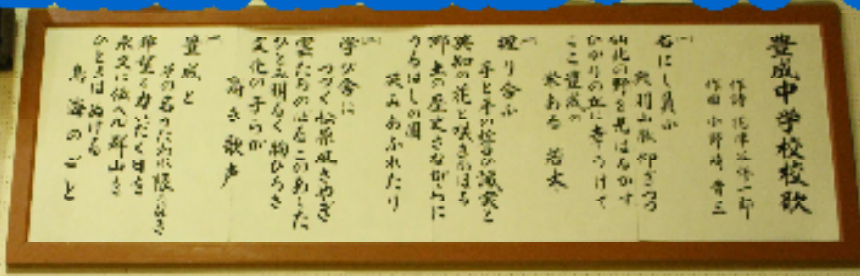 豊成中学校校歌
作詩 花津谷修一郎
作曲 小野崎晋三
一
名にし負ふ
奥羽山脈仰ぎつつ
仙北の野を見はるかす
ひかりの丘に奉つけて
ここ豊成の
栄ある若木
二
理り合ふ
手と手に結ぶ誠実と
英知の花と咲きかほる
郷土の歴史さながらに
うるはしの園
笑みあふれたり
三
学び舎に
つづく松原風さやぎ
雲たちのぼるこのあした
ひとみ明るく胸ひろき
文化の子らが
高き歌声
豊成と
その名のために限りなき
希望と力いだく日を
永久に伝へん郡山を
ひとみはぬける
鳥海のごと